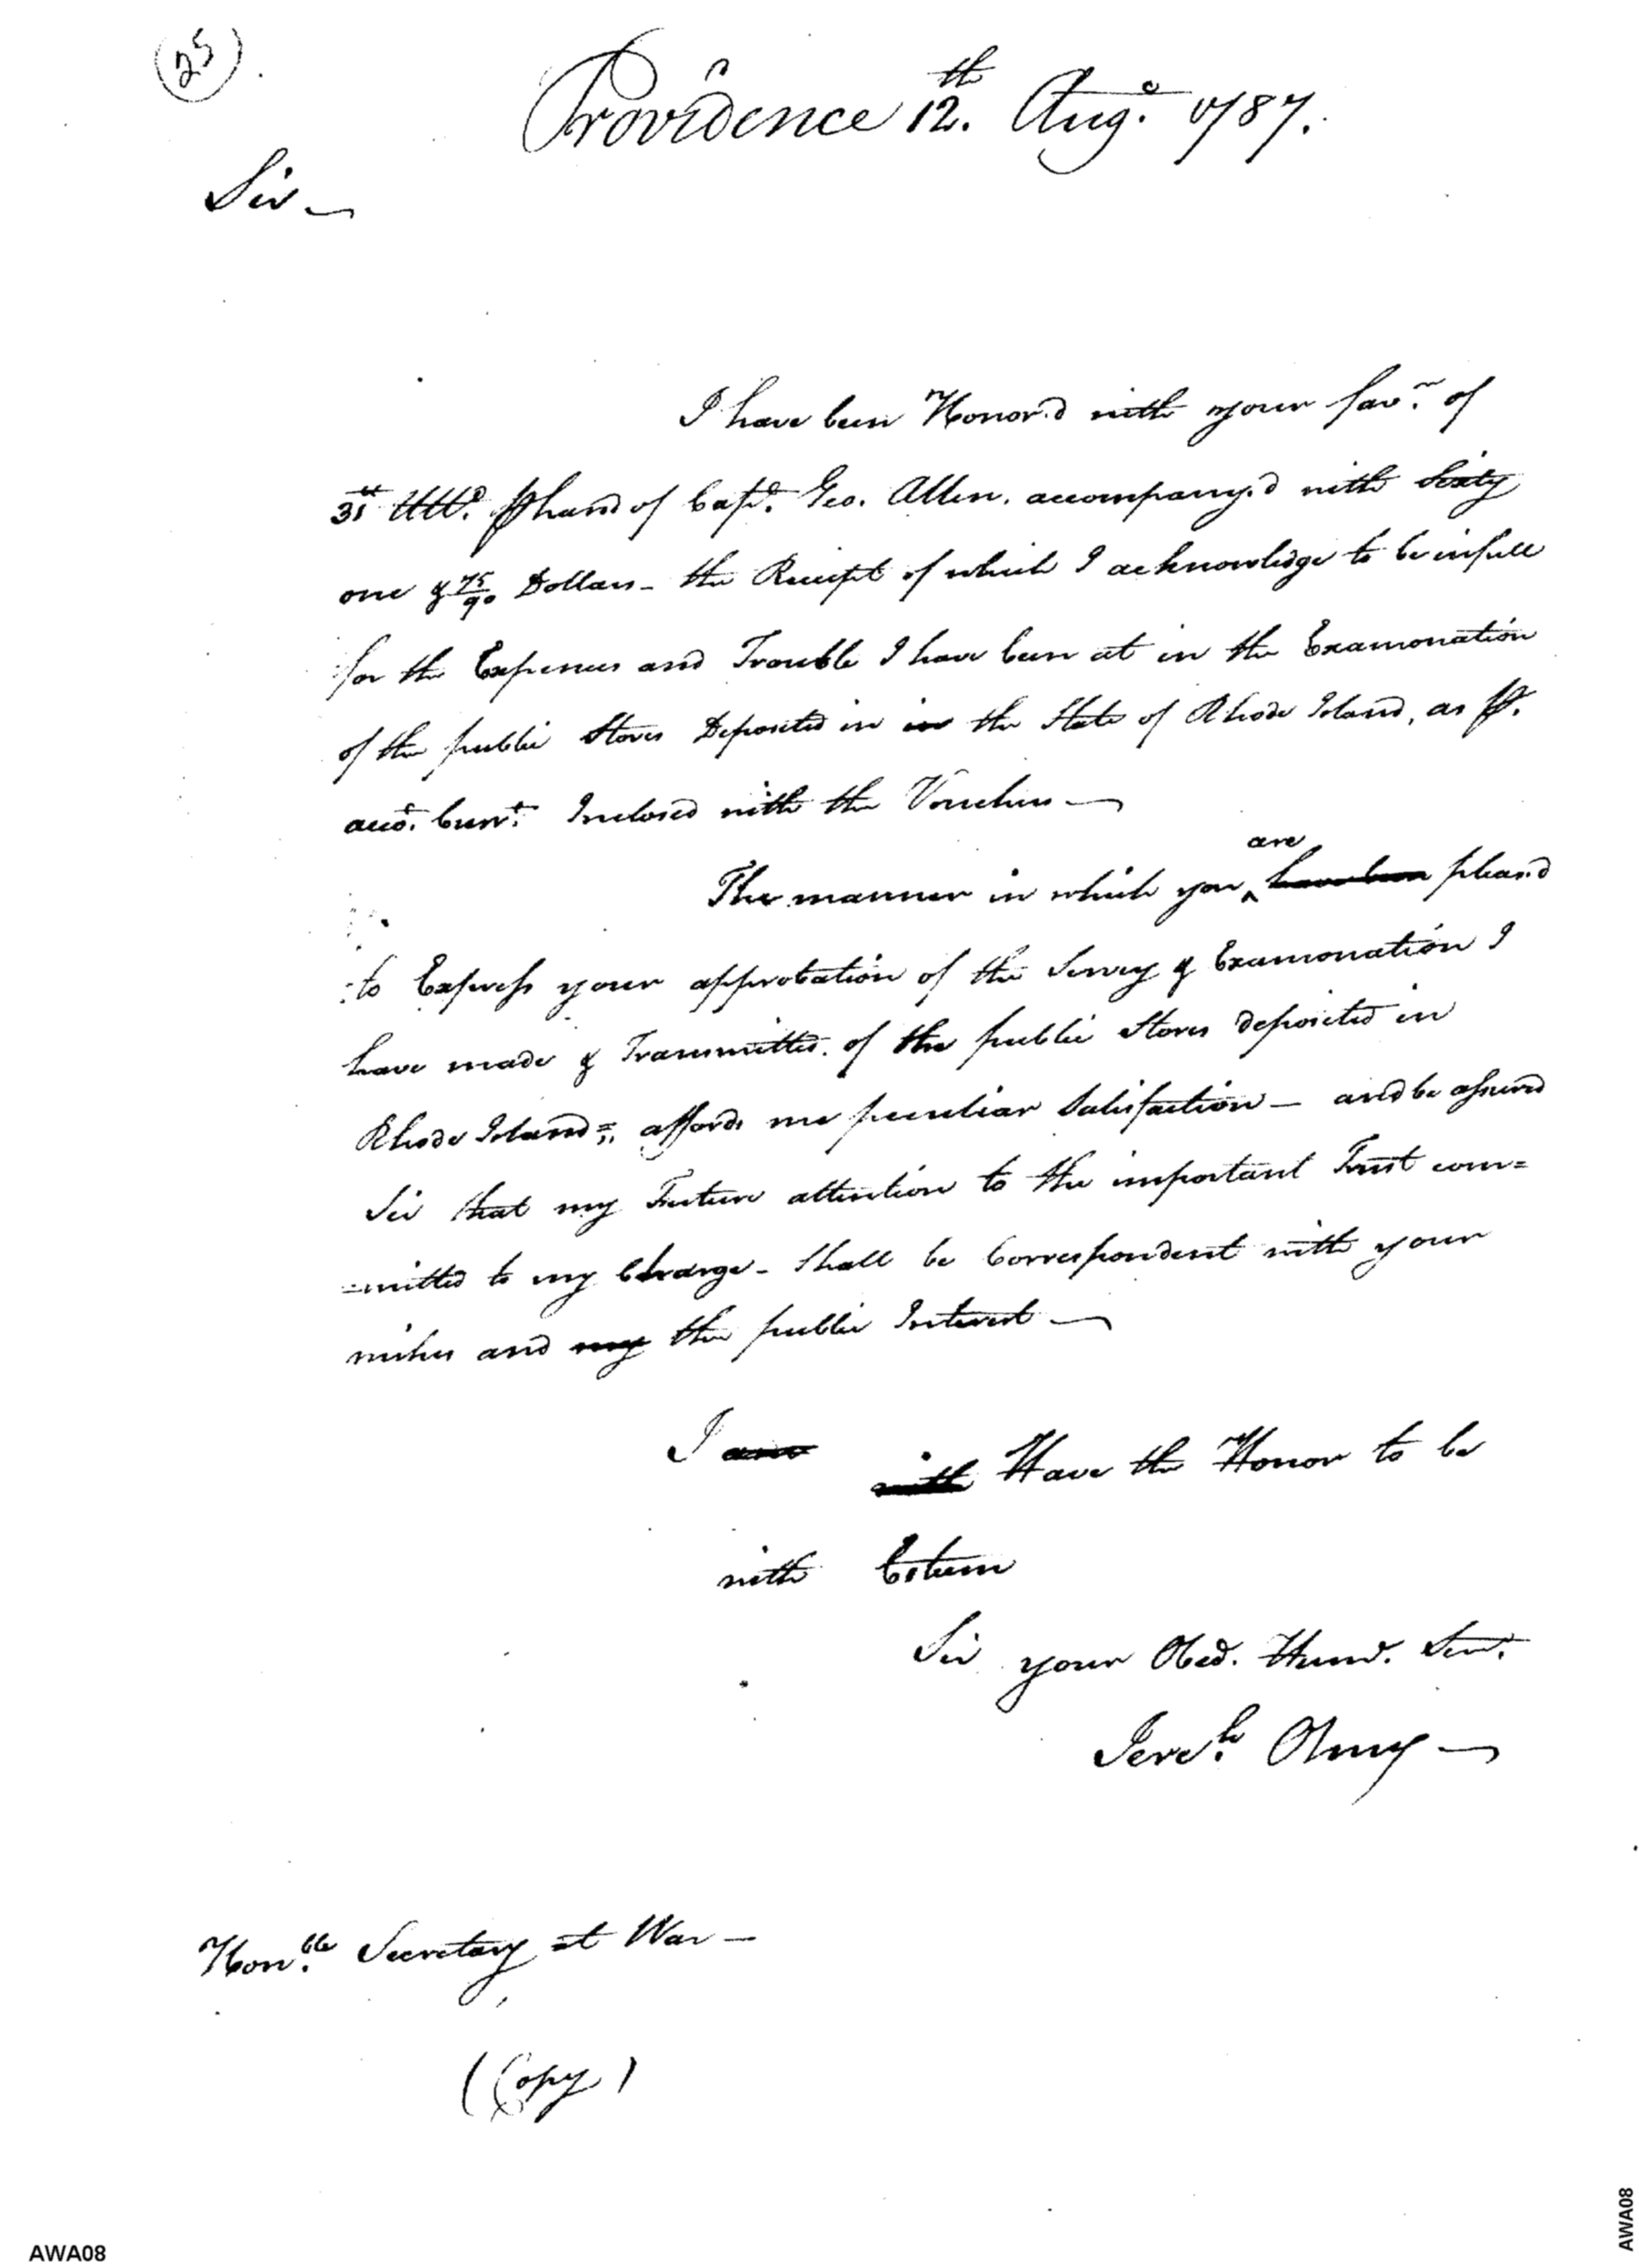 (25).
Providence 12.th Aug.t 1787.
Sir —
I have been Honor.d with your fav.r of
31st Ult.o ⅌ hand of Capt. Geo. Allen. accompany.d with Sixty
one & 75/90 Dollars - the Receipt of which I acknowledge to be infull
for the Expences and Trouble I have been at in the Examonation
of the public Stores Deposited in in the State of Rhode Island, as ⅌.
acco.t Curr.t Inclosed with the Vouchers —
are
The manner in which you ^ have been pleas.d
to Express your approbation of the Survey & Examonation I
have made & Transmitted. of the public Stores deposited in
Rhode Island =, affords me peculiar Satisfaction — and be assured
Sir that my Future attention to the important Trust com=
=mitted to my Charge - Shall be Correspondent with your
wishes and my the public Interest —
I am with Have the Honor to be
with Esteem
Sir your Obed. Hum.e Serv.t
Jere.h Olney —
Hon.ble Secretary at War —
(Copy)
AWA08
AWA08